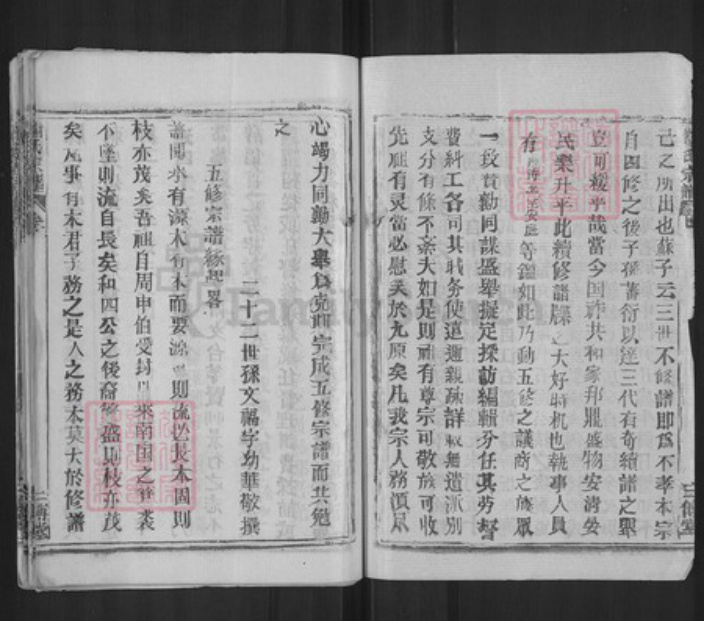 己之所出也蘇子云三世不修譜即為不孝本宗
自四修之後子孫蕃衍以達三代有奇續譜之舉
豈可緩乎哉當今国祚共和家邦鼎盛物安清晏
民樂升平此續修譜牒之大好時机也執事人員
有 等鑑如此乃動五修之議商之族眾
一致贊勸同謀盛舉擬定採訪編輯分任其勞督
費糾工各司其职务使遠邇親疎詳收無遺派別
支分有條不紊夫如是則祖有尊宗可敬族可收
先祖有灵當必慰矣於九原矣凡我宗人務須
心竭力同勷大舉為克期完成五修宗譜而共勉
之
二十二世孫文福字幼華敬撰
五修宗譜緣起畧
蓋聞水有源木有本而要源 則流也長本固則
枝亦茂矣吾祖自周申伯受封以來南国之 裘
不墜則流自長矣和四公之後裔繁盛則枝亦茂
矣凡事有本君子務之是人之務本莫大於修譜